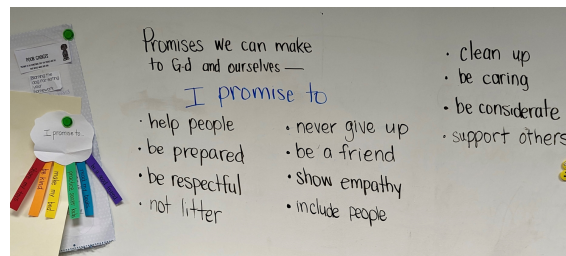 Promises we can make
to G-d and ourselves —
I promise to
· help people
· be prepared
· be respectful
· not litter
· never give up
· be a friend
· show empathy
· include people
· clean up
· be caring
· be considerate
· support others
I promise to...
make my bed